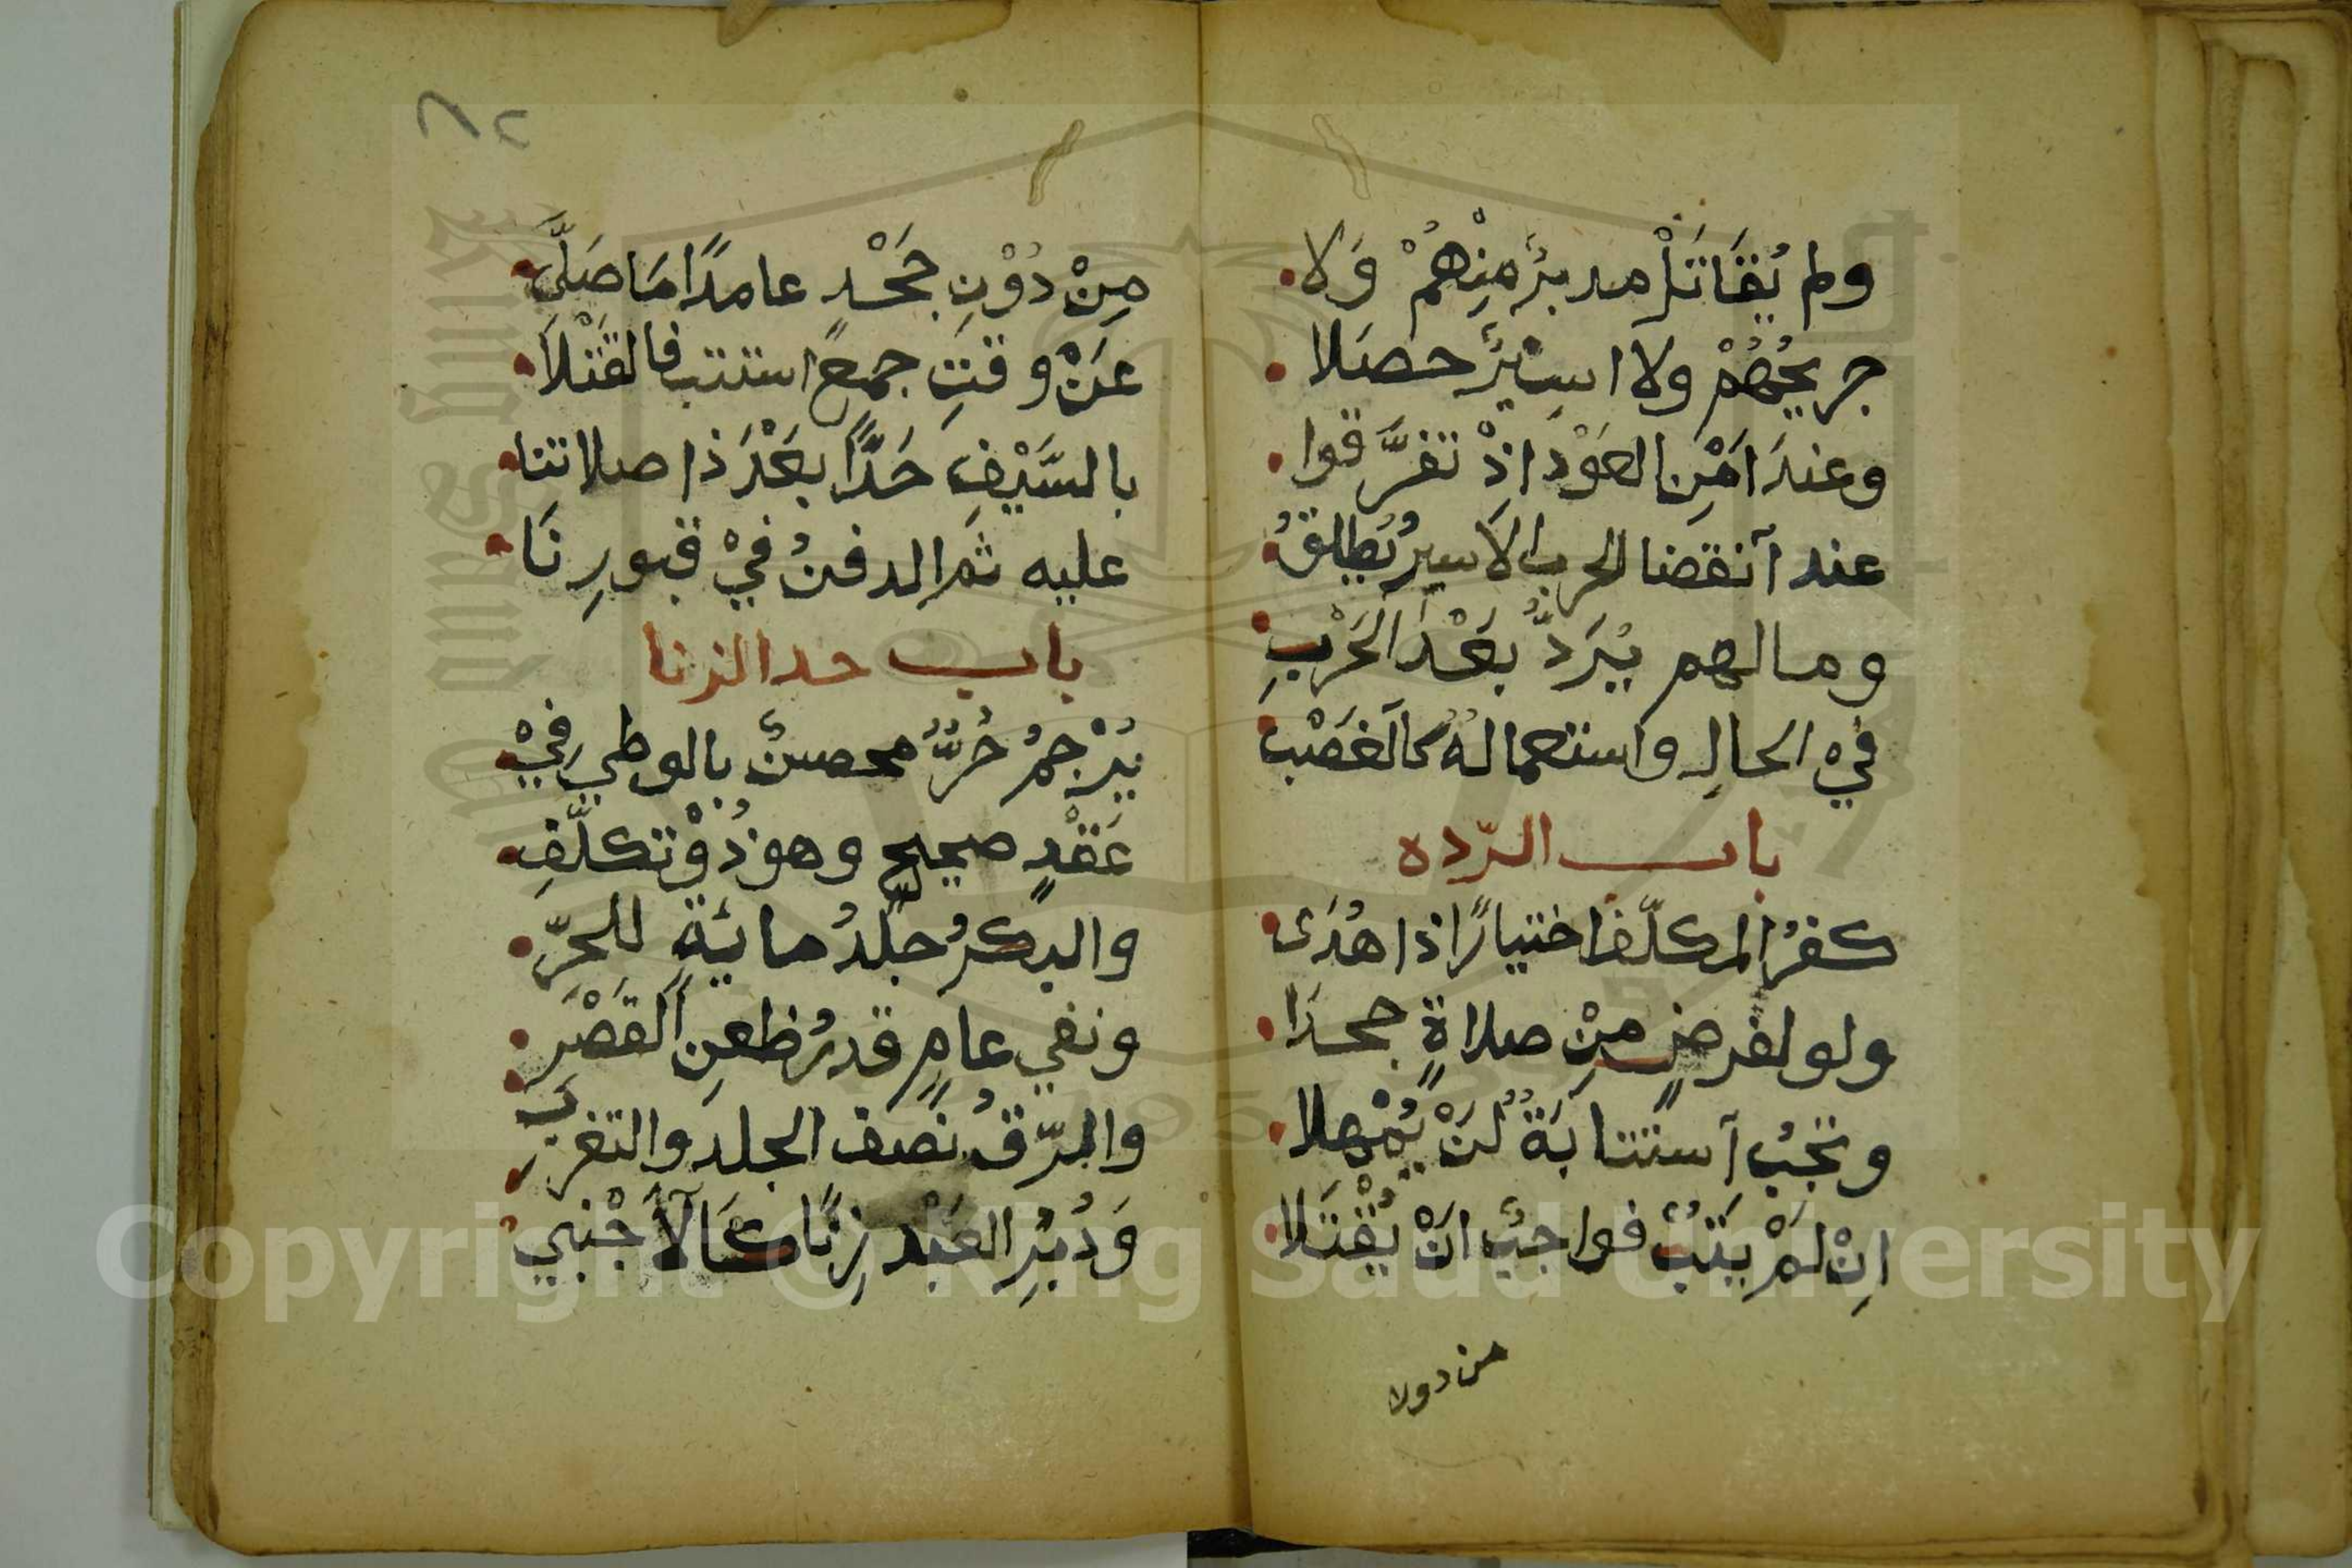 ولم يُقَاتَلْ مدبرٌ مِنْهُمْ وَلا
جريحُهُمْ ولا اسِيْرٌ حصَلا
وعندَ امْنِ العَوْدِ اذْ تفرَّقوا
عند آنقضا الحرب الاسيرُ يُطلقُ
ومالهم يُرَدُّ بعْدَ الحَرْبِ
فيْ الحالِ واستعمالهُ كالغَصْبِ
باب الرّده
كفرُ المكلّف اختيارًا ذا هُدَى
ولو لفرضٍ مِنْ صلاةٍ جحدَا
وتجبُ آستتابَةٌ لنْ يُمْهلا
اِنْ لمْ يَتُبْ فواجبٌ انْ يُقْتَلا
من دون
مِنْ دُوْنِ جَحْدٍ عامدًا مَا صَلَّى
عَنْ وقتِ جمعٍ استتب فالقَتْلاَ
بالسَّيْفِ حَدًّا بعْدَ ذا صلاتنا
عليه ثم الدفنُ فيْ قبورِنَا
باب حد الزنا
يُرْجمُ حُرٌّ محصنٌ بالوطيِ فيْ
عَقْدٍ صحيحٍ وهو ذُوْ تكلّفِ
والبكرُ جلدُ مايَةٍ للحرِّ
ونفي عامٍ قدرُ ظعنِ القَصْرِ
والرّقُ نصف الجلد والتغرب
وَدُبُرِ العَبْدِ زِنًا كَالاَجْنبي
Copyright © King Saud University
King Saud University
1957